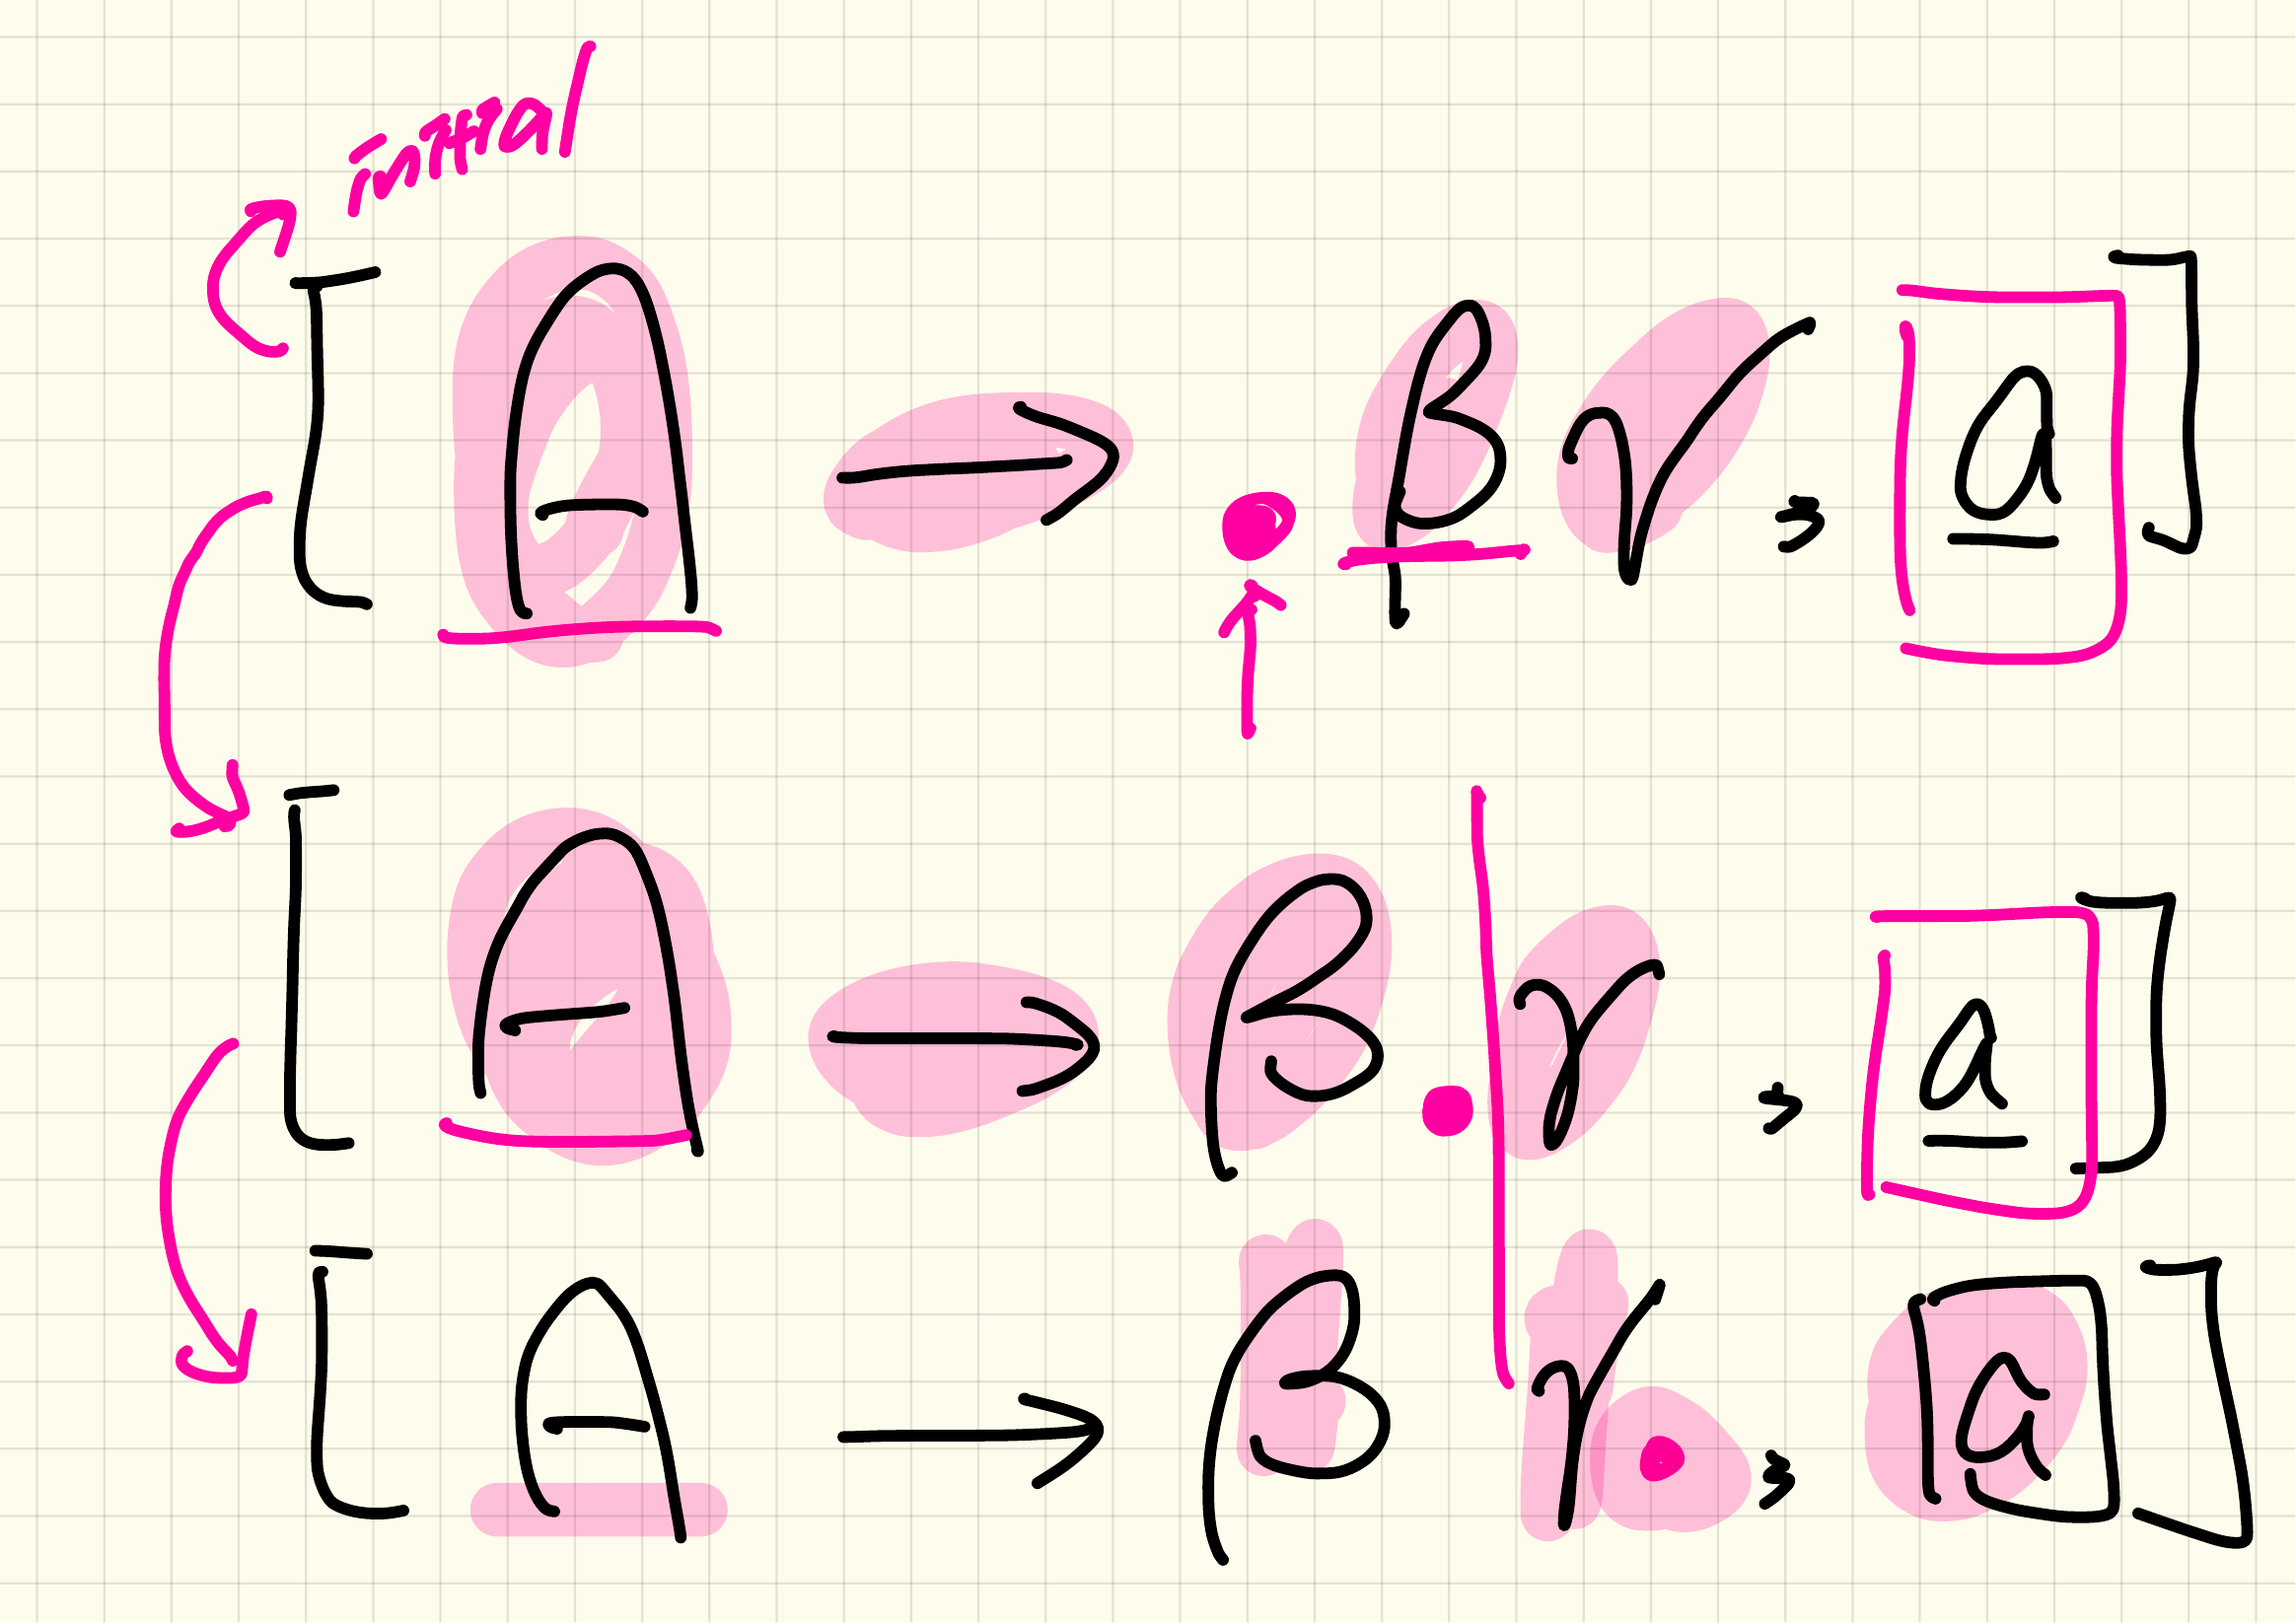 initial
[A → • β γ , a]
[A → β • γ , a]
[A → β γ • , a]